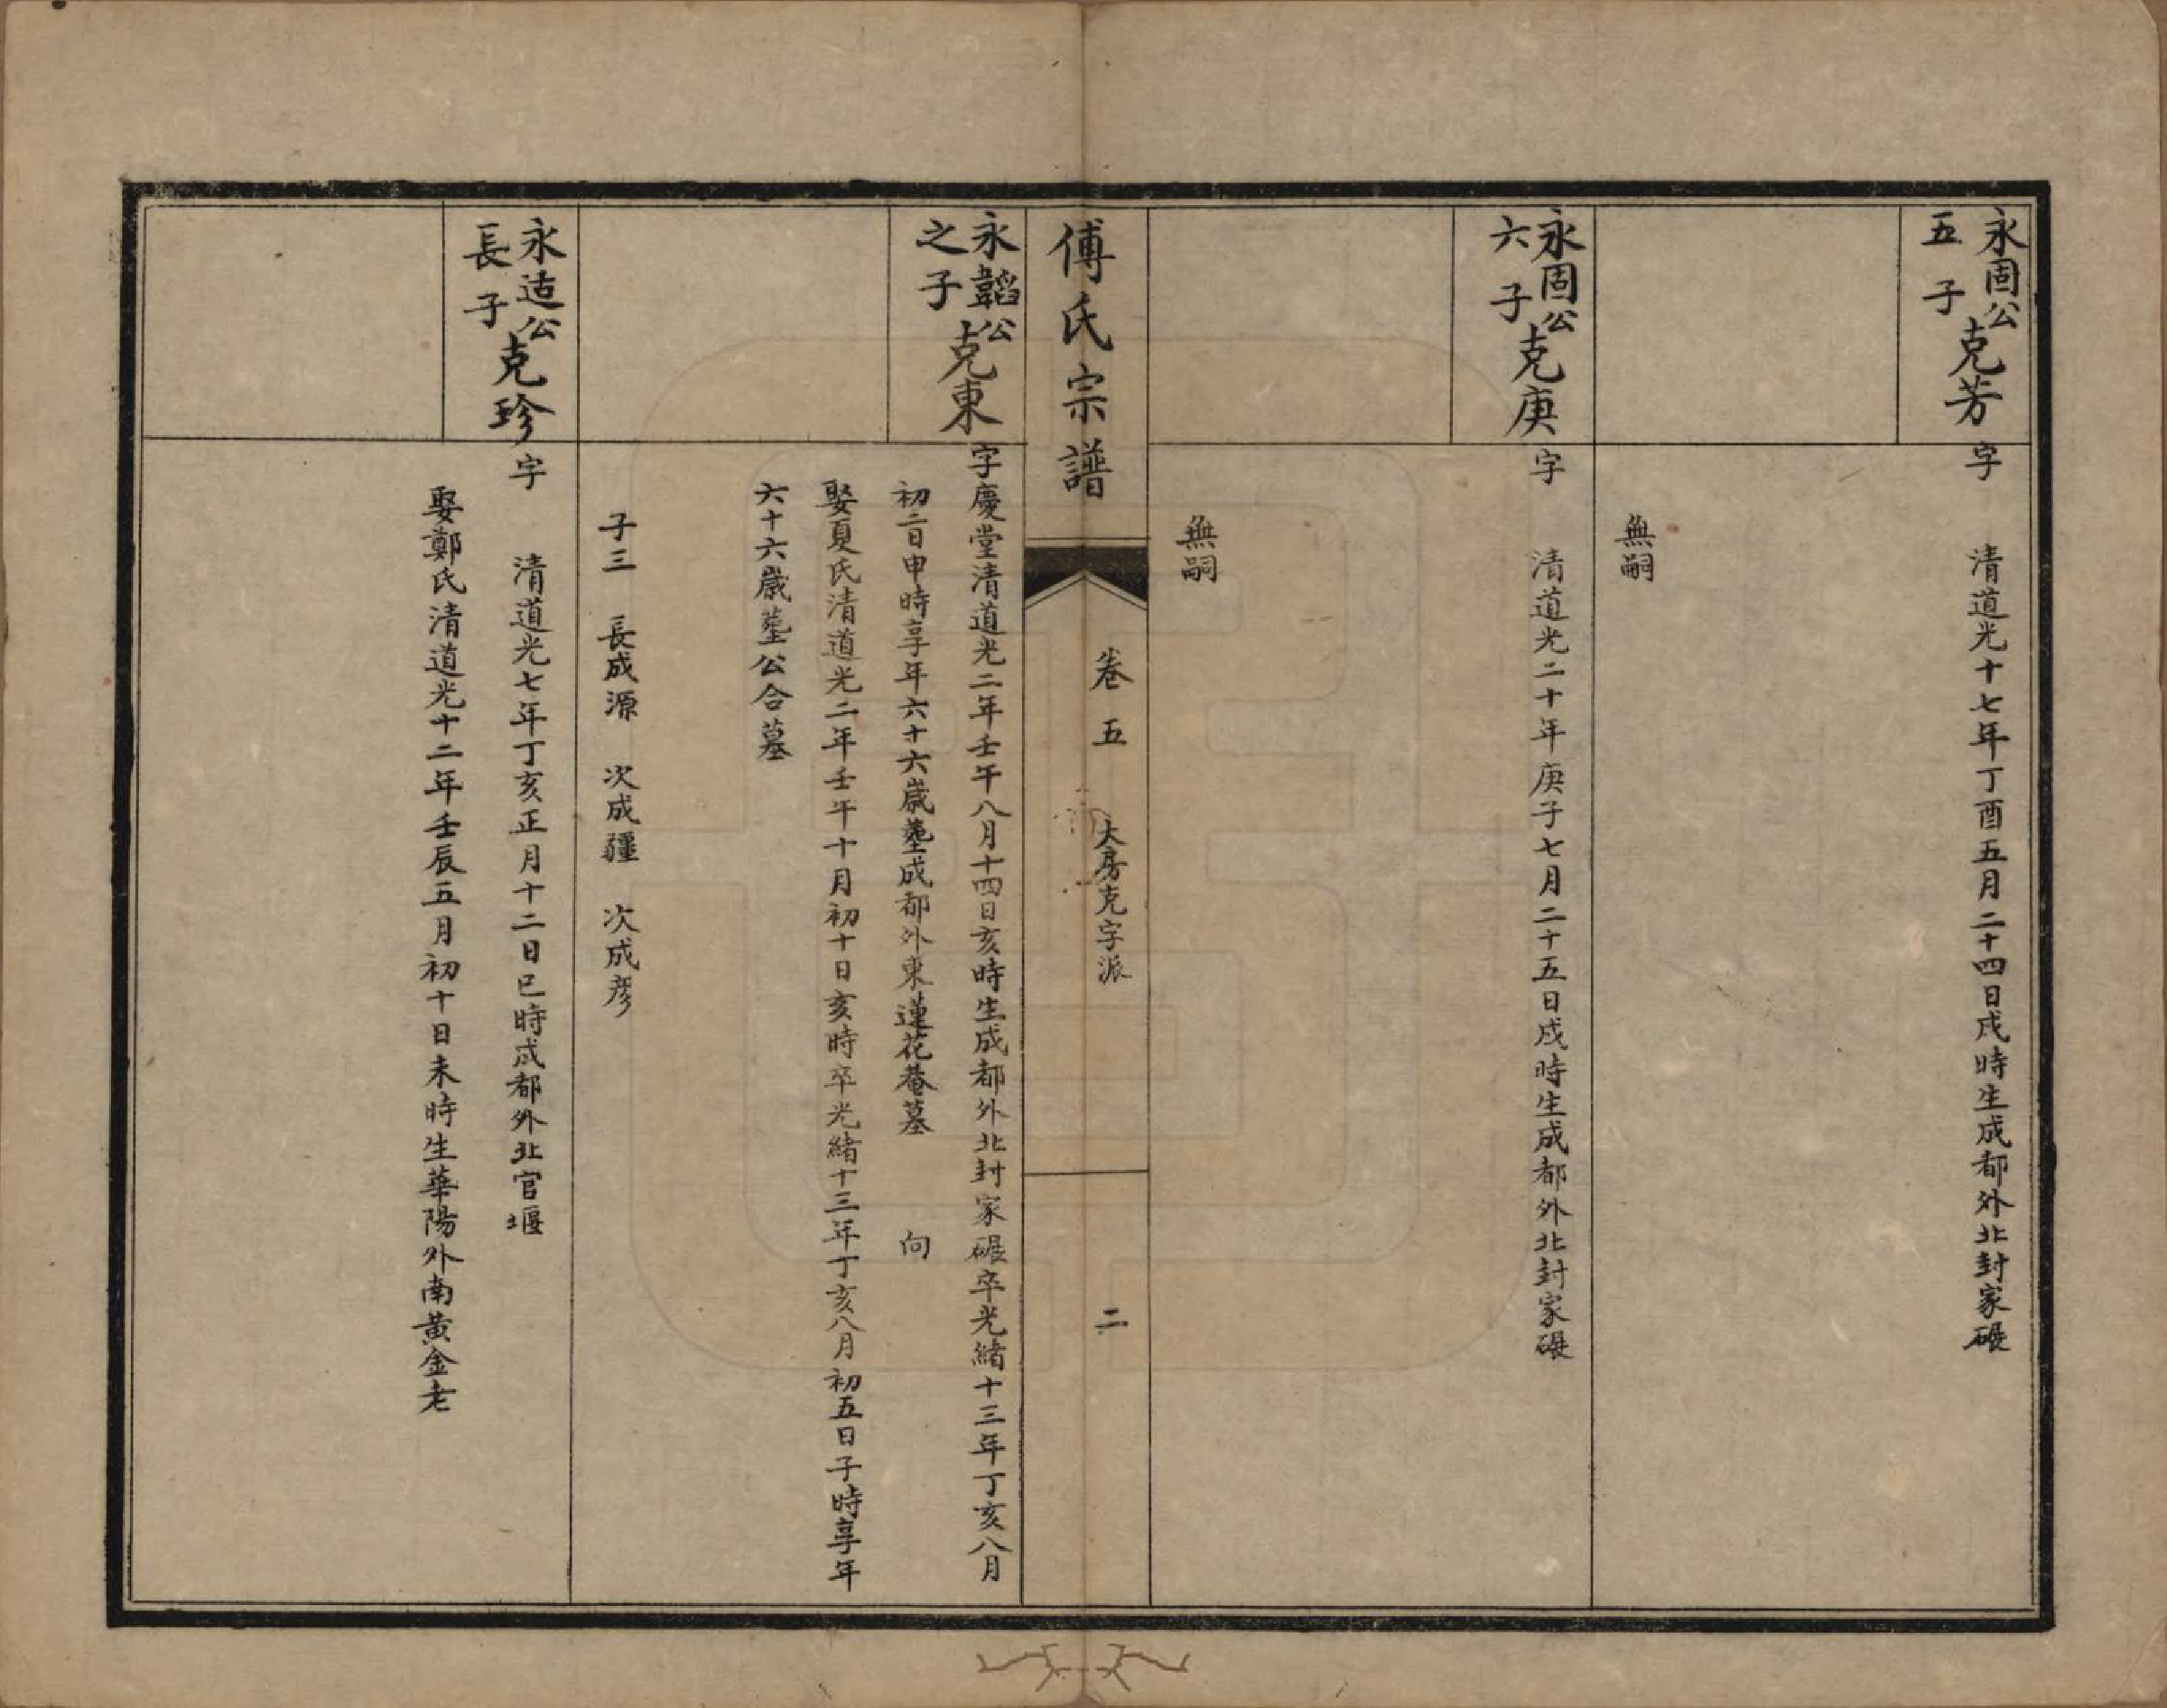 永固公
五子
克芳
字　清道光十七年丁酉五月二十四日戌時生成都外北封家碾
無嗣
永固公
六子
克庚
字　清道光二十年庚子七月二十五日戌時生成都外北封家碾
無嗣
傅氏宗譜
卷五　大房克字派
二
永韜公
之子
克東
字慶堂清道光二年壬午八月十四日亥時生成都外北封家碾卒光緒十三年丁亥八月
初二日申時享年六十六歲塟成都外東蓮花菴墓　向
娶夏氏清道光二年壬午十月初十日亥時卒光緒十三年丁亥八月初五日子時享年
六十六歲塟公合墓
子三　長成源　次成疆　次成彦
永适公
長子
克珍
字　清道光七年丁亥正月十二日巳時成都外北官堰
娶鄭氏清道光十二年壬辰五月初十日未時生華陽外南黃金老